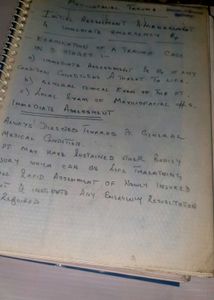 Maxillofacial Trauma
Initial Assessment & Management
& immediate emergency
Examination of a Trauma Case
in 3 stages :-
a) immediate assessment & of any
condition constitutes a threat to life.
b) General clinical exam of the pt
c) Local exam of Maxillofacial #s.
Immediate Assessment
Always directed towards a general
medical condition.
pt may have sustained other bodily
injury which can be life threatening,
rapid assessment of newly injured
& institute any emergency resuscitation
Required